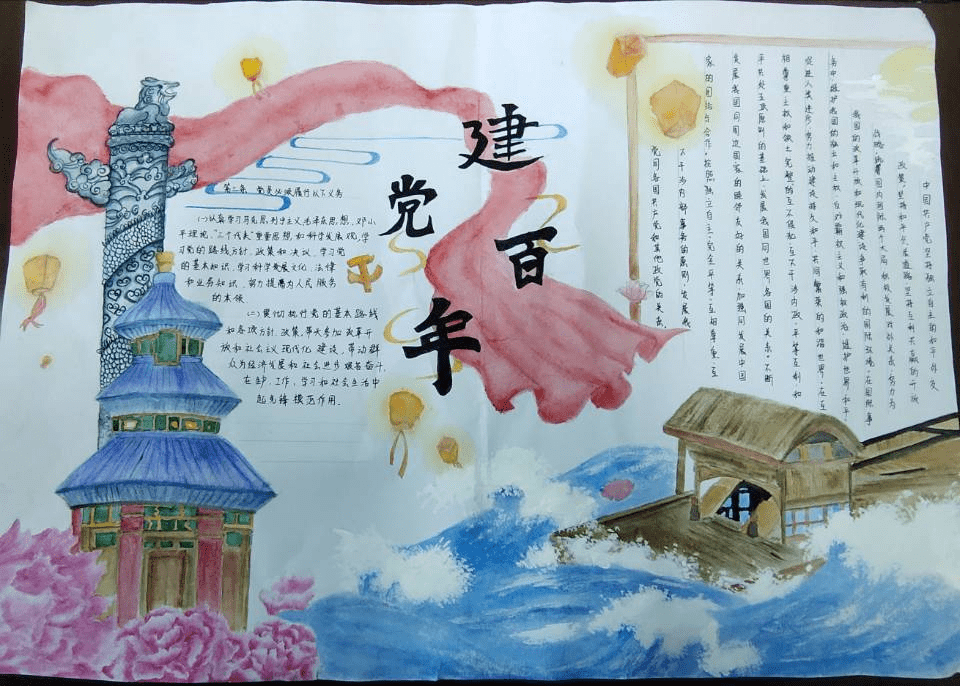 建党百年
第三条 党员必须履行以下义务
(一)认真学习马克思、列宁主义、毛泽东思想、邓小
平理论、"三个代表"重要思想,和科学发展观,学
习党的路线方针、政策和决议,学习党
的基本知识,学习科学发展文化、法律
和业务知识,努力提高为人民服务
的本领
(二)贯彻执行党的基本路线
和各项方针、政策,带头参加改革开
放和社会主义现代化建设,带动群
众为经济发展和社会进步艰苦奋斗,
在生产、工作、学习和社会生活中
起先锋模范作用.
中国共产党坚持独立自主的和平外交
政策,坚持和平发展道路,坚持互利共赢的开放
战略,统筹国内国际两个大局,积极发展对外关系,努力为
我国的改革开放和现代化建设争取有利的国际环境。在国际事
务中,维护我国的独立和主权,反对霸权主义和强权政治,维护世界和平,
促进人类进步,努力推动建设持久和平、共同繁荣的和谐世界。在互
相尊重主权和领土完整、互不侵犯、互不干涉内政、平等互利、和
平共处五项原则的基础上,发展我国同世界各国的关系。不断
发展我国同周边国家的睦邻友好的关系,加强同发展中国
家的团结与合作。按照独立自主、完全平等、互相尊重、互
不干涉内部事务的原则,发展我
党同各国共产党和其他政党的关系